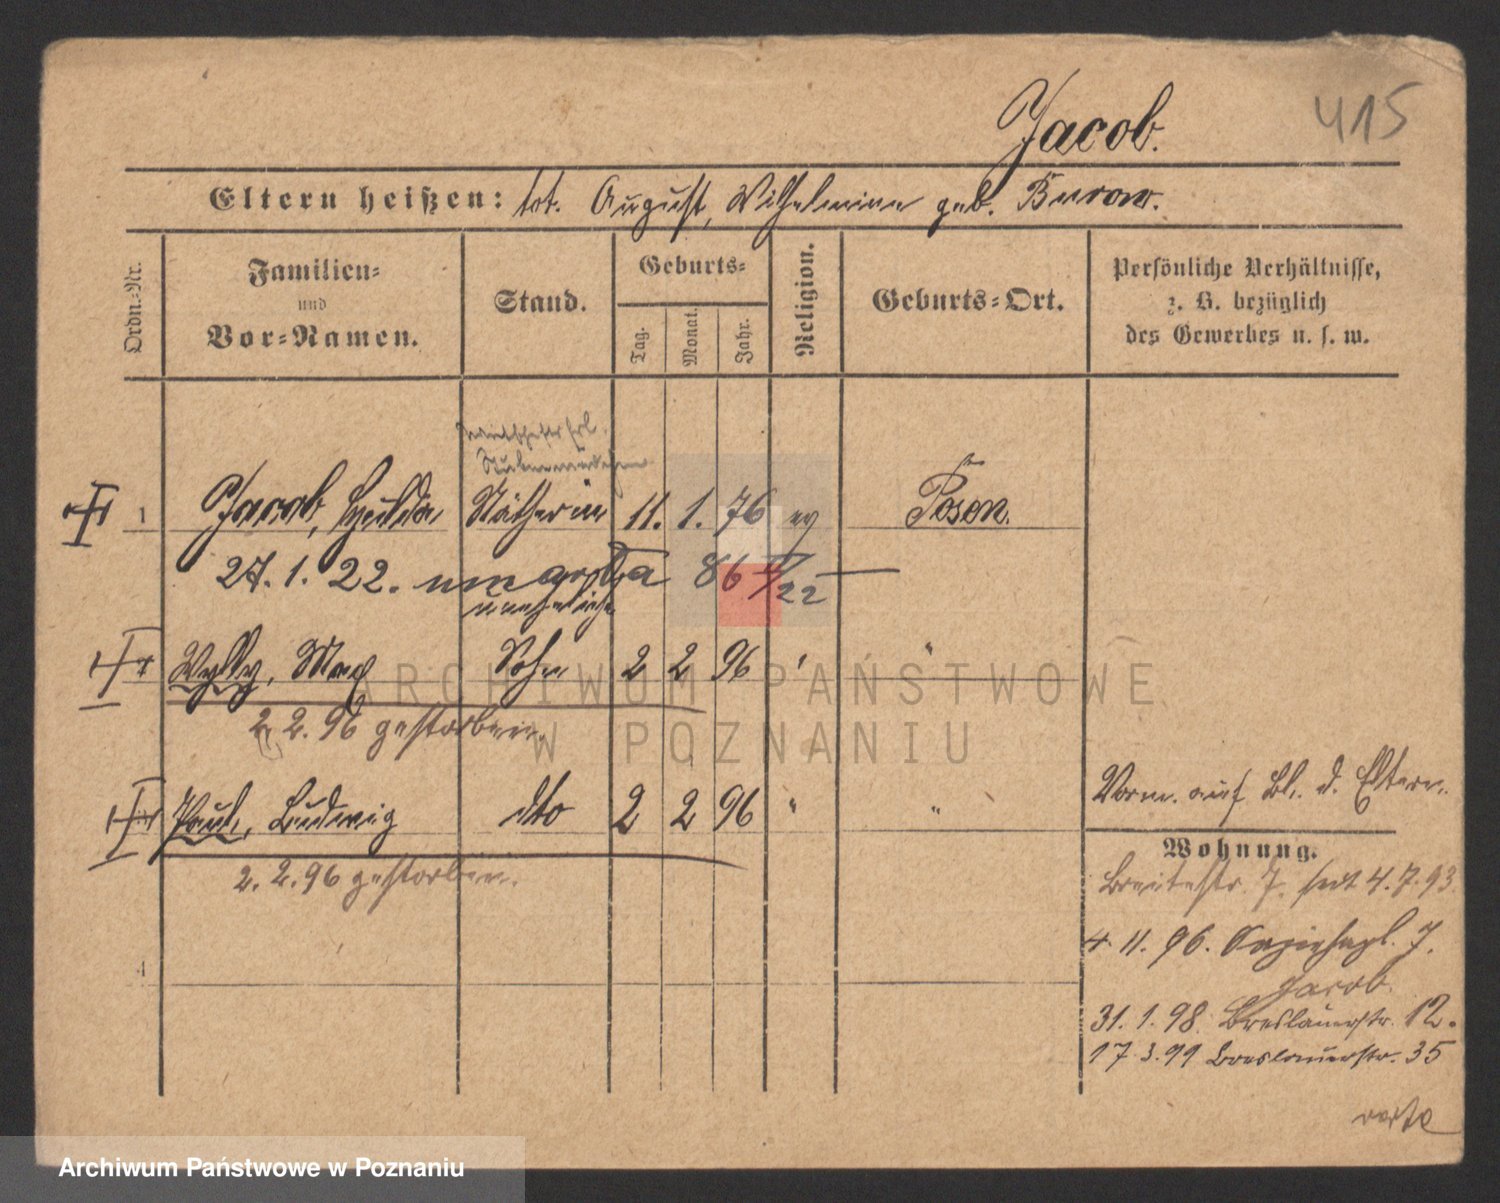 415
Jacob.
Eltern heißen: tot. August, Wilhelmine geb. Burow.
Ordn.-Nr.
Familien-
und
Vor-Namen.
Stand.
Geburts-
Tag.
Monat.
Jahr.
Religion.
Geburts-Ort.
Persönliche Verhältnisse,
z. B. bezüglich
des Gewerbes u. s. w.
1 Jacob, Hulda Nätherin 11. 1. 76 ev Posen.
27. 1. 22. 86 22
unehelicher
Max Sohn 2 2 96 " "
2. 2. 96 gestorben.
Paul, Ludwig dto 2 2 96 " "
2. 2. 96 gestorben.
4
Vorm. auf Bl. d. Eltern.
Wohnung.
Breitestr. 7. seit 4. 7. 93.
4 11. 96. 7.
Jacob.
31. 1. 98. Breslauerstr. 12.
17. 3. 99 Breslauerstr. 35
ARCHIWUM PAŃSTWOWE
W POZNANIU
Archiwum Państwowe w Poznaniu